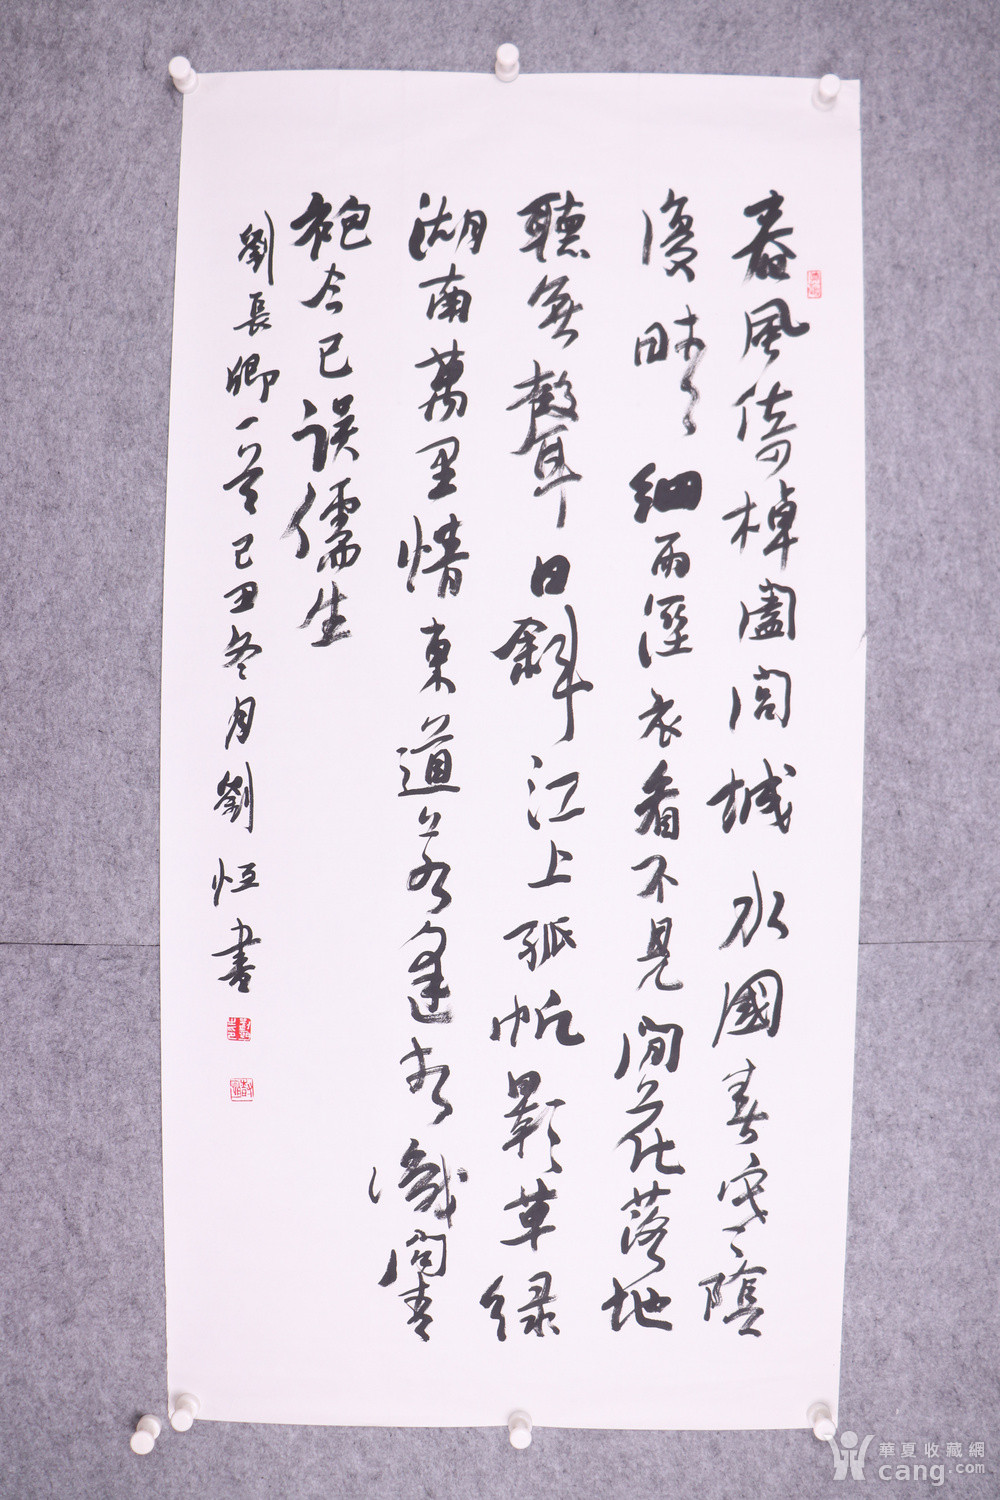 春風倚棹闔閭城水國春寒陰
復晴細雨溼衣看不見閒花落地
聽無聲日斜江上孤帆影草綠
湖南萬里情東道若逢相識問青
袍今已誤儒生
劉長卿一首己丑冬月劉恒書
華夏收藏網
cang.com